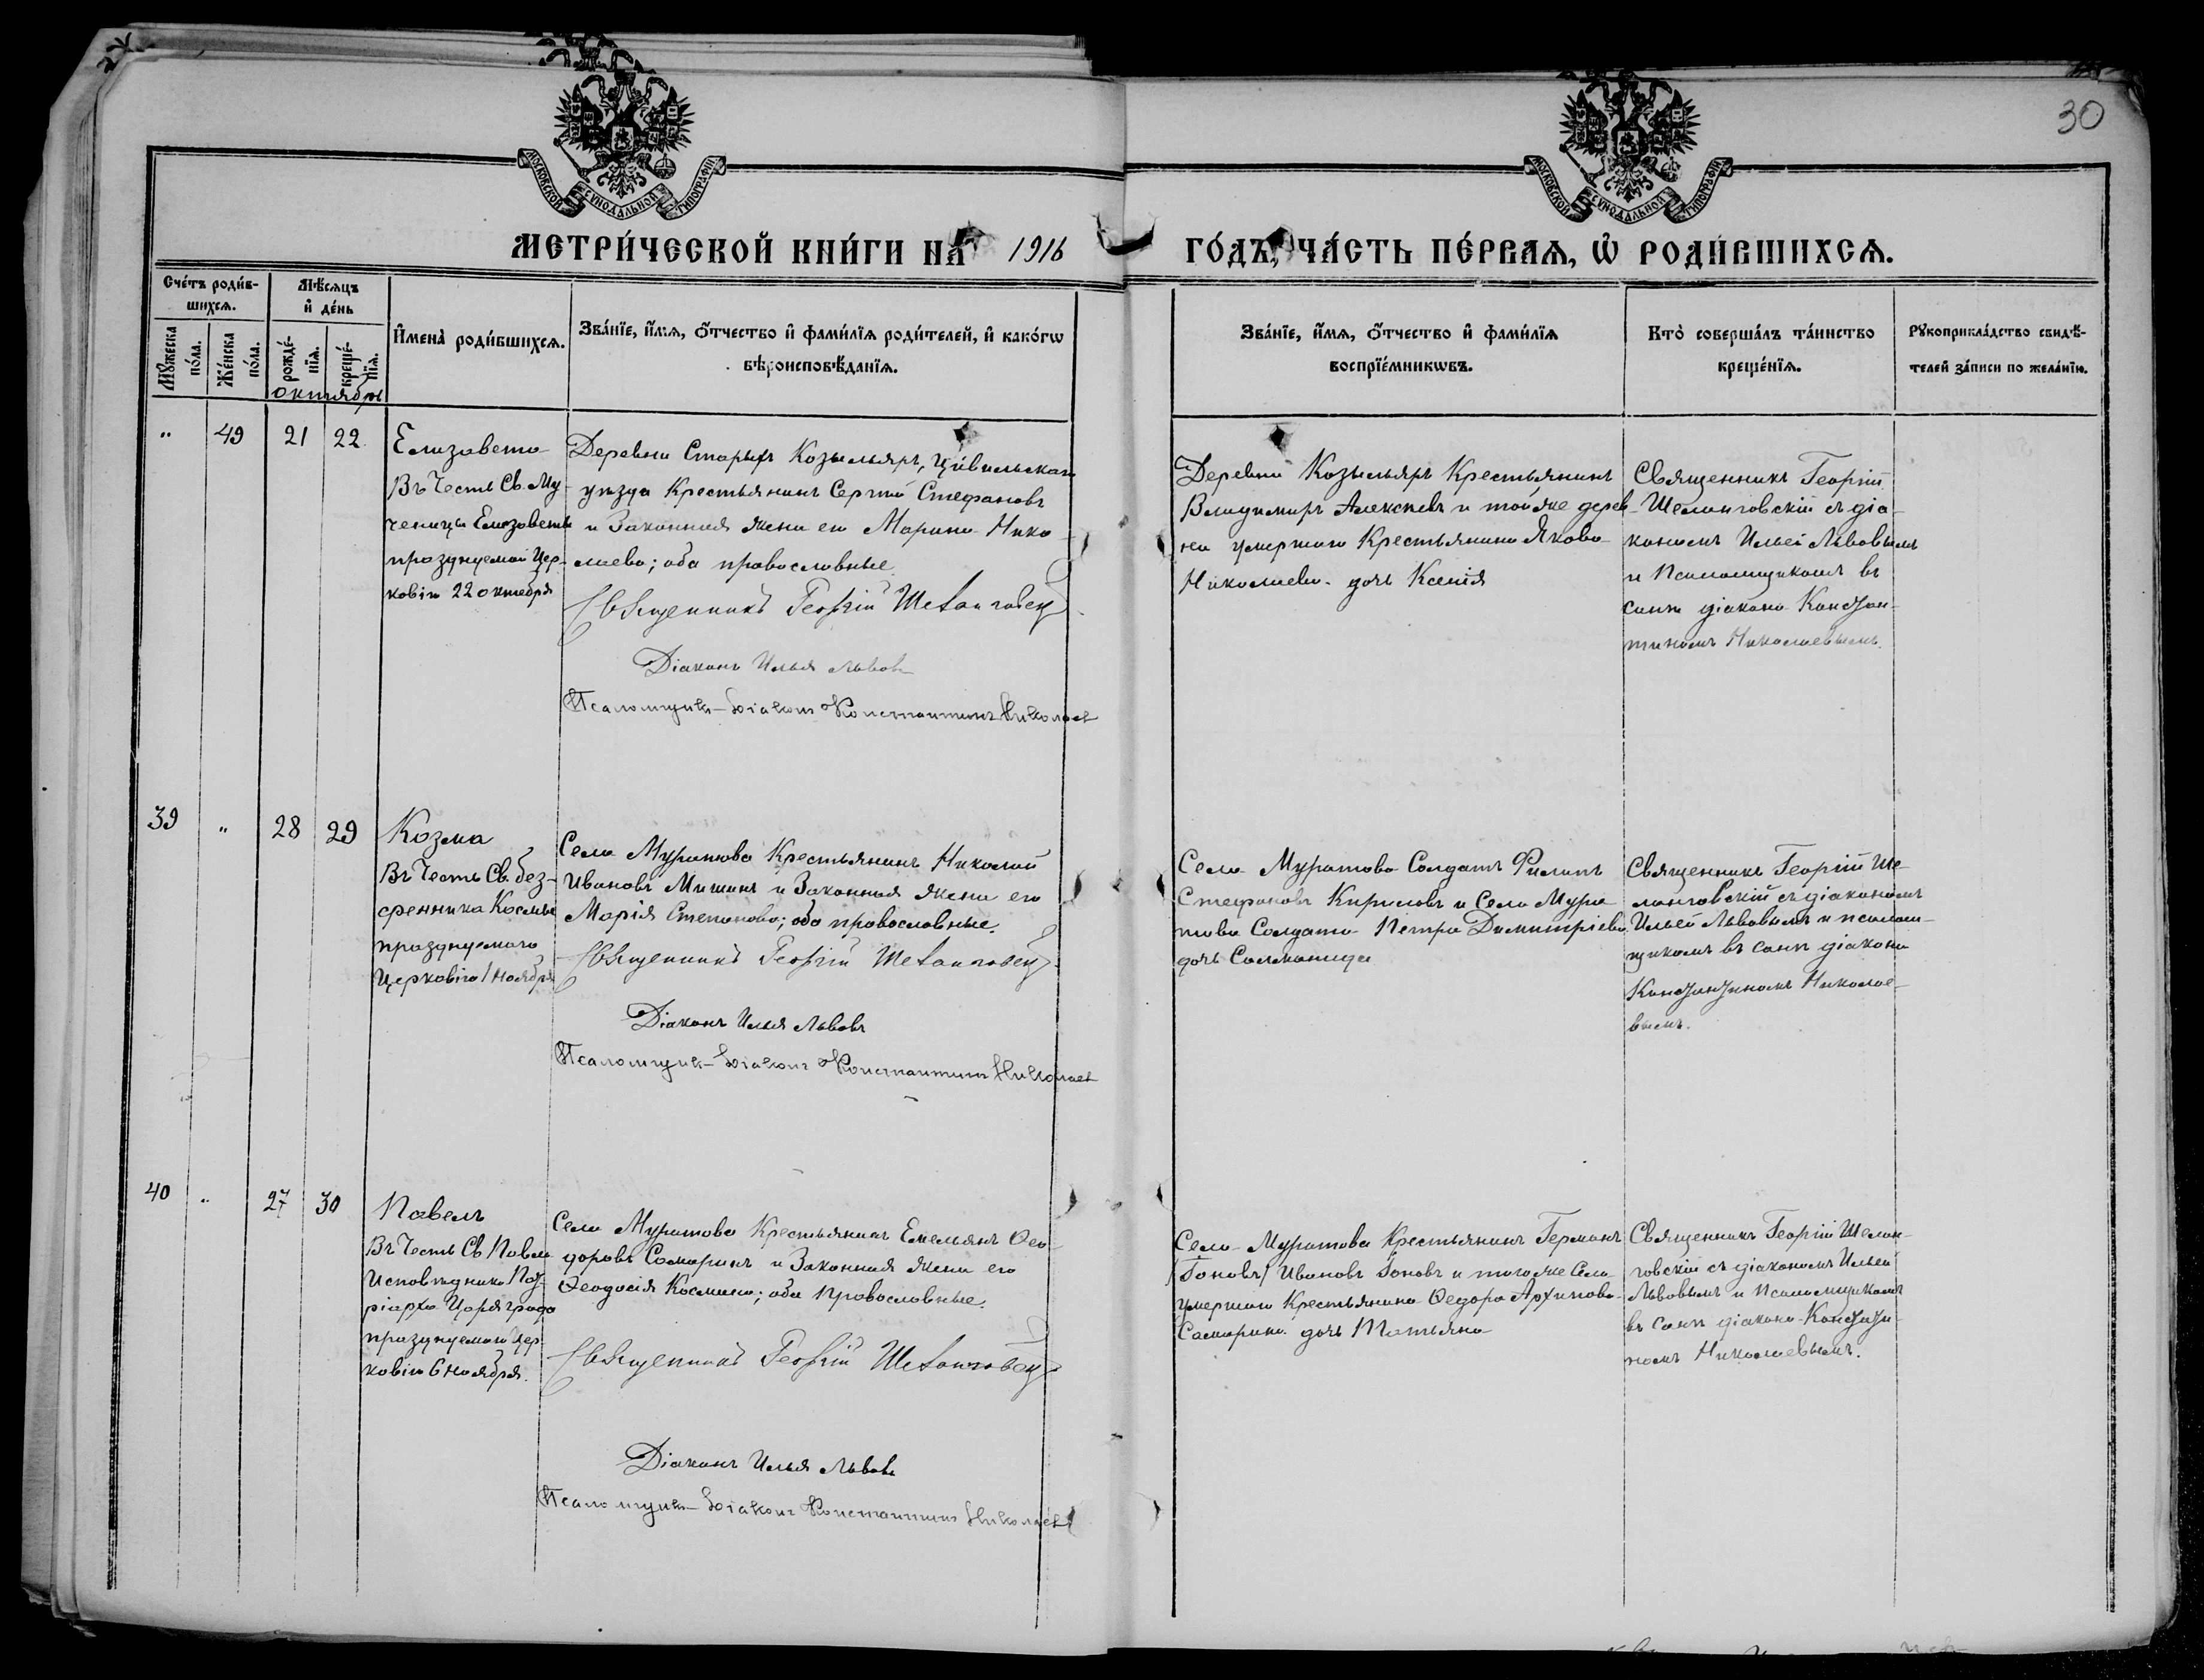 30
МОСКОВСКОЙ СѴНОДАЛЬНОЙ ТИПОГРАФІИ
МОСКОВСКОЙ СѴНОДАЛЬНОЙ ТИПОГРАФІИ
МЕТРИ́ЧЕСКОЙ КНИ́ГИ НА 1916 ГО́ДЪ, ЧА́СТЬ ПЕ́РВАѦ, Ѡ҆ РОДИ́ВШИХСѦ.
Сче́тъ роди́в-
шихсѧ.
Мꙋ́жеска
по́ла.
Же́нска
по́ла.
Мѣ́сѧцъ
и҆ де́нь
рожде́-
нїѧ.
креще́-
нїѧ.
октябрь
И҆мена̀ роди́вшихсѧ.
Зва́нїе, и҆́мѧ, ѻ҆́тчество и҆ фами́лїѧ роди́телей, и҆ како́гѡ
вѣроисповѣ́данїѧ.
Зва́нїе, и҆́мѧ, ѻ҆́тчество и҆ фами́лїѧ
воспрїе́мникѡвъ.
Кто̀ соверша́лъ та́инство
креще́нїѧ.
Рꙋкоприкла́дство свидѣ́-
телей за́писи по жела́нїю.
" 49 21 22
Елизавета
Въ Честь Св. Му-
ченицы Елизаветы
празднуемой Цер-
ковію 22 октября
Деревни Старыхъ Козыльяръ, Цивильскаго
уѣзда Крестьянинъ Сергій Стефановъ
и Законная жена его Марина Нико-
лаева; оба православные.
Священникъ Георгій Шеланговскій
Діаконъ Илья Львовъ
Псаломщикъ-Діаконъ Константинъ Николаевъ
Деревни Козыльяръ Крестьянинъ
Владимиръ Алексѣевъ и той же дерев-
ни умершаго Крестьянина Якова
Николаева дочь Ксенія
Священникъ Георгій
Шеланговскій съ діа-
кономъ Ильей Львовымъ
и Псаломщикомъ въ
санѣ діакона Констан-
тиномъ Николаевымъ.
39 " 28 29
Козма
Въ Честь Св. без-
сренника Космы
празднуемаго
Церковію 1 ноября
Села Муратова Крестьянинъ Николай
Ивановъ Мишинъ и Законная жена его
Марія Степанова; оба православные.
Священникъ Георгій Шеланговскій
Діаконъ Илья Львовъ
Псаломщикъ-Діаконъ Константинъ Николаевъ
Села Муратова Солдатъ Филипъ
Стефановъ Кириловъ и Села Мура-
това Солдата Петра Димитріева
дочь Саломанида
Священникъ Георгій Ше-
ланговскій съ діакономъ
Ильей Львовымъ и псалом-
щикомъ въ санѣ діакона
Константиномъ Николае-
вымъ.
40 " 27 30
Павелъ
Въ Честь Св. Павла
Исповѣдника Пат-
ріарха Царяграда
празднуемаго Цер-
ковію 6 ноября.
Села Муратова Крестьянинъ Емельянъ Ѳео-
доровъ Самаринъ и Законная жена его
Ѳеодосія Космина; оба православные.
Священникъ Георгій Шеланговскій
Діаконъ Илья Львовъ
Псаломщикъ-Діаконъ Константинъ Николаевъ
Села Муратова Крестьянинъ Германъ
/Гоновъ/ Ивановъ Гоновъ и того же Села
умершаго Крестьянина Ѳедора Архипова
Самарина дочь Татьяна
Священникъ Георгій Шелан-
говскій съ діакономъ Ильей
Львовымъ и Псаломщикомъ
въ санѣ діакона Константи-
номъ Николаевымъ.